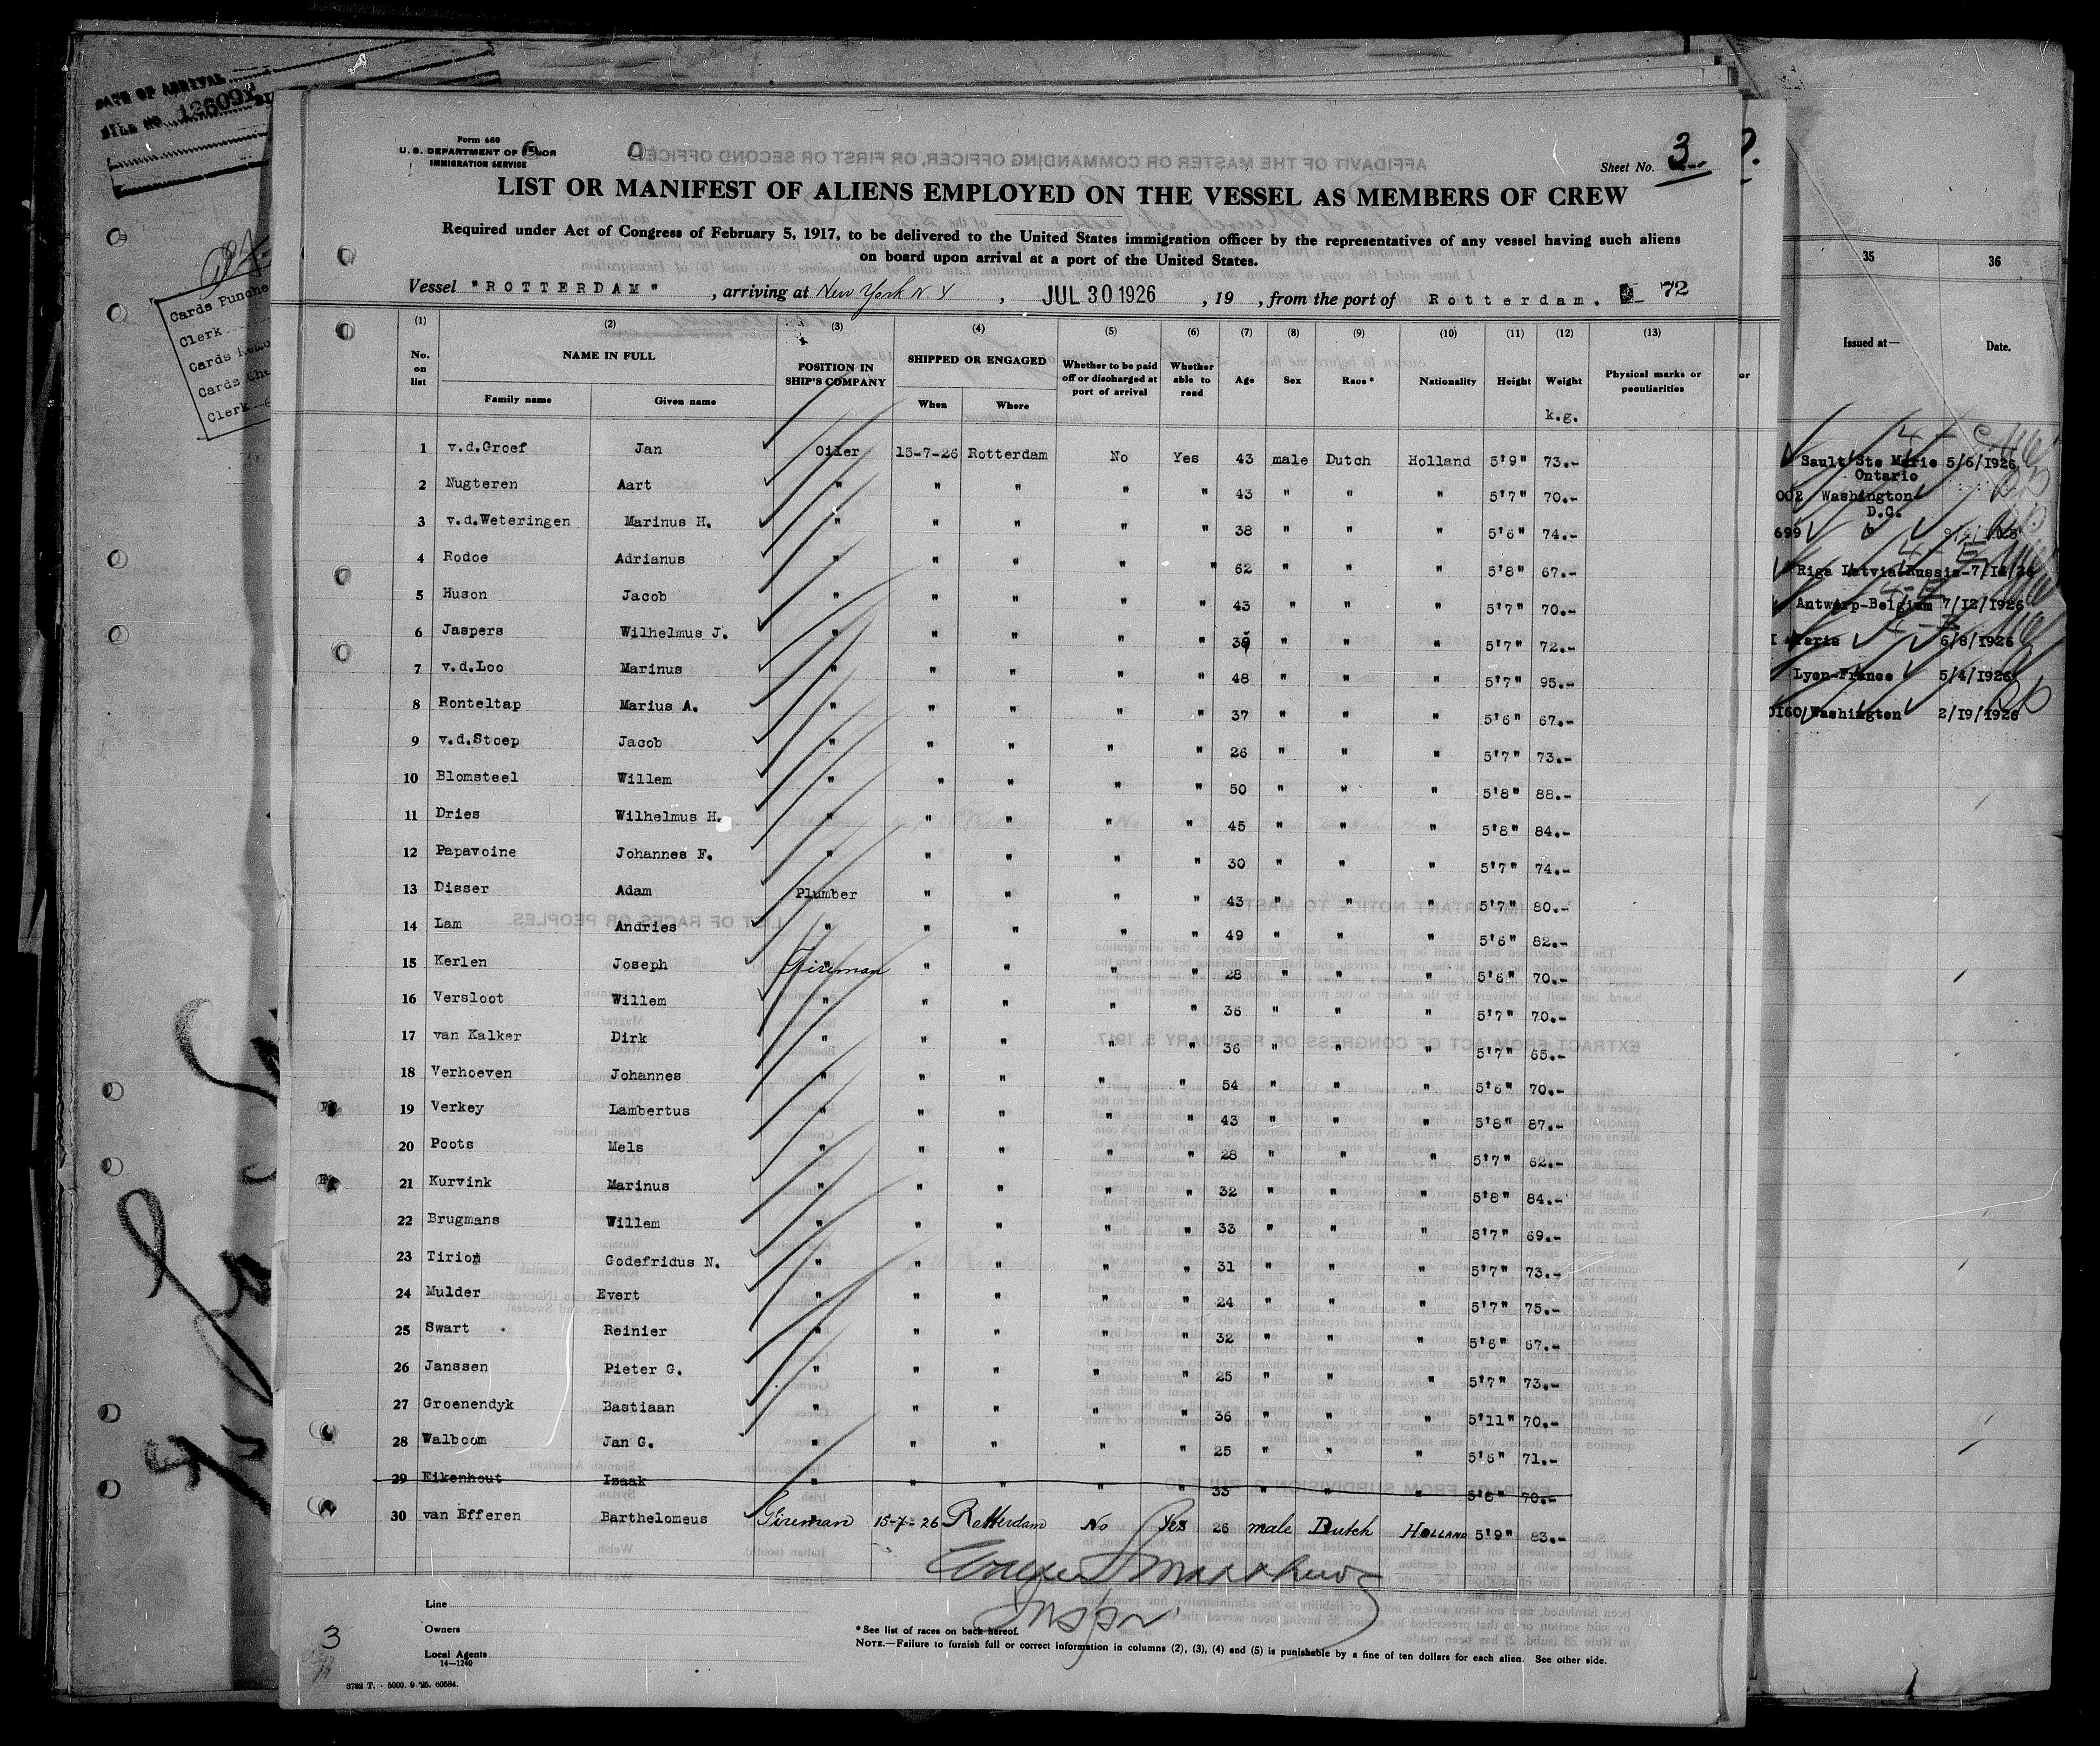 DATE OF ARRIVAL
FILE NO 126091
Cards Punche
Clerk
Cards
Cards Che
Clerk
Form 680
U. S. DEPARTMENT OF LABOR
IMMIGRATION SERVICE
Sheet No. 3
LIST OR MANIFEST OF ALIENS EMPLOYED ON THE VESSEL AS MEMBERS OF CREW
Required under Act of Congress of February 5, 1917, to be delivered to the United States immigration officer by the representatives of any vessel having such aliens
on board upon arrival at a port of the United States.
Vessel "ROTTERDAM" , arriving at New York N.Y , JUL 30 1926 , 19 , from the port of Rotterdam. 72
(1) (2) (3) (4) (5) (6) (7) (8) (9) (10) (11) (12) (13)
No. on list NAME IN FULL Family name Given name POSITION IN SHIP'S COMPANY SHIPPED OR ENGAGED When Where Whether to be paid off or discharged at port of arrival Whether able to read Age Sex Race* Nationality Height Weight Physical marks or peculiarities
k.g.
1 v.d.Groef Jan Oiler 15-7-26 Rotterdam No Yes 43 male Dutch Holland 5'9" 73.-
2 Nugteren Aart " " " " " 43 " " " 5'7" 70.-
3 v.d.Weteringen Marinus H. " " " " " 38 " " " 5'6" 74.-
4 Rodoe Adrianus " " " " " 62 " " " 5'8" 67.-
5 Huson Jacob " " " " " 43 " " " 5'7" 70.-
6 Jaspers Wilhelmus J. " " " " " 39 " " " 5'7" 72.-
7 v.d.Loo Marinus " " " " " 48 " " " 5'7" 95.-
8 Ronteltap Marius A. " " " " " 37 " " " 5'6" 67.-
9 v.d.Stoep Jacob " " " " " 26 " " " 5'7" 73.-
10 Blomsteel Willem " " " " " 50 " " " 5'8" 88.-
11 Dries Wilhelmus H. " " " " " 45 " " " 5'8" 84.-
12 Papavoine Johannes F. " " " " " 30 " " " 5'7" 74.-
13 Disser Adam Plumber " " " " 43 " " " 5'7" 80.-
14 Lam Andries " " " " " 49 " " " 5'6" 82.-
15 Kerlen Joseph Fireman " " " " 28 " " " 5'6" 70.-
16 Versloot Willem " " " " " 36 " " " 5'7" 70.-
17 van Kalker Dirk " " " " " 36 " " " 5'7" 65.-
18 Verhoeven Johannes " " " " " 54 " " " 5'6" 70.-
19 Verkey Lambertus " " " " " 43 " " " 5'8" 87.-
20 Poots Mels " " " " " 28 " " " 5'7" 62.-
21 Kurvink Marinus " " " " " 32 " " " 5'8" 84.-
22 Brugmans Willem " " " " " 33 " " " 5'7" 69.-
23 Tirion Godefridus N. " " " " " 31 " " " 5'7" 73.-
24 Mulder Evert " " " " " 24 " " " 5'7" 75.-
25 Swart Reinier " " " " " 32 " " " 5'6" 67.-
26 Janssen Pieter G. " " " " " 25 " " " 5'7" 73.-
27 Groenendyk Bastiaan " " " " " 36 " " " 5'11" 70.-
28 Walboom Jan G. " " " " " 25 " " " 5'6" 71.-
29 Eikenhout Izaak " " " " " 33 " " " 5'8" 70.-
30 van Efferen Barthelomeus Fireman 15-7-26 Rotterdam No Yes 26 male Dutch HOLLAND 5'9" 83.-
Line
Owners
Local Agents
14—1240
*See list of races on back hereof.
NOTE.—Failure to furnish full or correct information in columns (2), (3), (4) and (5) is punishable by a fine of ten dollars for each alien. See other side.
3
8782 T. - 5000. 9-'25. 60584.
or
35 36
Issued at— Date.
Sault Ste Marie 5/6/1926
Ontario
002 Washington
D.C.
699
Riga Latvia-Russia-7/12/26
Antwerp-Belgium 7/12/1926
Paris 6/8/1926
Lyon-France 5/4/1926
0160 Washington 2/19/1926